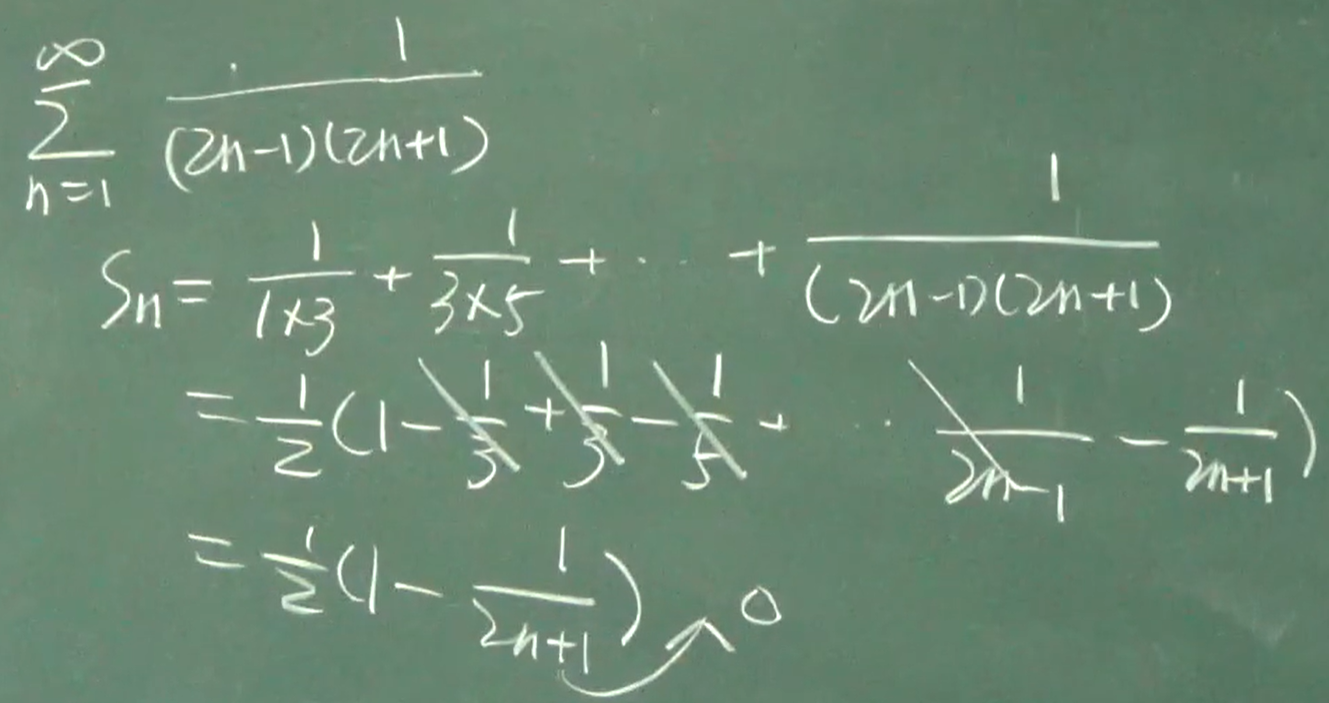 ∞
∑ 1/((2n-1)(2n+1))
n=1
Sn = 1/(1×3) + 1/(3×5) + ··· + 1/((2n-1)(2n+1))
= 1/2 (1 - 1/3 + 1/3 - 1/5 + ·· 1/(2n-1) - 1/(2n+1))
= 1/2 (1 - 1/(2n+1)) → 0